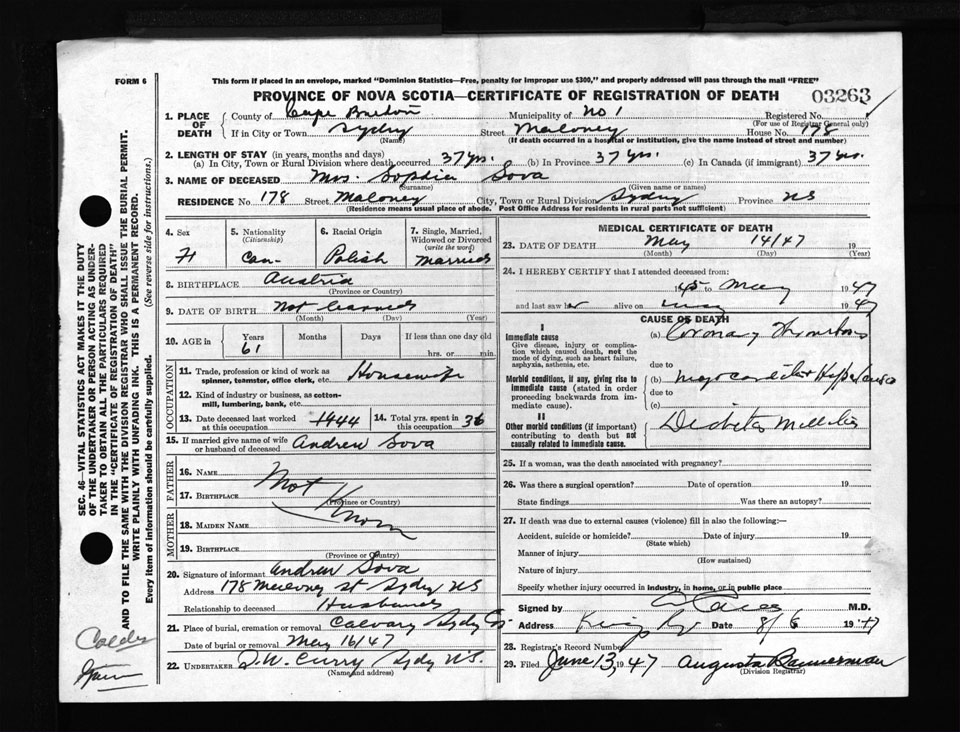 FORM 6
This form if placed in an envelope, marked "Dominion Statistics—Free, penalty for improper use $300," and properly addressed will pass through the mail "FREE"
PROVINCE OF NOVA SCOTIA—CERTIFICATE OF REGISTRATION OF DEATH
03263
1. PLACE OF DEATH
County of Cape Breton Municipality of No 1 Registered No.
(For use of Registrar General only)
If in City or Town Sydney Street Maloney House No. 178
(Name) (If death occurred in a hospital or institution, give the name instead of street and number)
2. LENGTH OF STAY (in years, months and days)
(a) In City, Town or Rural Division where death occurred 37 yrs. (b) In Province 37 yrs. (c) In Canada (if immigrant) 37 yrs.
3. NAME OF DECEASED Mrs. Sophie Sova
(Surname) (Given name or names)
RESIDENCE No. 178 Street Maloney City, Town or Rural Division Sydney Province NS
(Residence means usual place of abode. Post Office Address for residents in rural parts not sufficient)
4. Sex
F
5. Nationality
(Citizenship)
Can-
6. Racial Origin
Polish
7. Single, Married, Widowed or Divorced
(write the word)
Married
8. BIRTHPLACE Austria
(Province or Country)
9. DATE OF BIRTH Not
(Month) (Day) (Year)
10. AGE in Years Months Days If less than one day old
61 hrs. or min.
OCCUPATION
11. Trade, profession or kind of work as spinner, teamster, office clerk, etc. Housewife
12. Kind of industry or business, as cotton-mill, lumbering, bank, etc.
13. Date deceased last worked at this occupation 1944
14. Total yrs. spent in this occupation 36
15. If married give name of wife or husband of deceased Andrew Sova
FATHER
16. NAME
17. BIRTHPLACE
(Province or Country)
Not Known
MOTHER
18. MAIDEN NAME
19. BIRTHPLACE
(Province or Country)
20. Signature of informant Andrew Sova
Address 178 Maloney St Sydney NS
Relationship to deceased Husband
21. Place of burial, cremation or removal Calvary Sydney
Date of burial or removal May 16/47
22. UNDERTAKER D.W. Curry Sydney N.S.
MEDICAL CERTIFICATE OF DEATH
23. DATE OF DEATH May 14/47 19
(Month) (Day) (Year)
24. I HEREBY CERTIFY that I attended deceased from:
1945 to May 1947
and last saw her alive on May 1947
CAUSE OF DEATH
I
Immediate cause
Give disease, injury or complication which caused death, not the mode of dying, such as heart failure, asphyxia, asthenia, etc.
(a) Coronary Thrombosis
due to
Morbid conditions, if any, giving rise to immediate cause (stated in order proceeding backwards from immediate cause).
(b) Myocarditis
due to
(c)
II
Other morbid conditions (if important) contributing to death but not causally related to immediate cause.
Diabetes Mellitus
25. If a woman, was the death associated with pregnancy?
26. Was there a surgical operation? Date of operation 19
State findings Was there an autopsy?
27. If death was due to external causes (violence) fill in also the following:—
Accident, suicide or homicide? Date of injury 19
(State which)
Manner of injury
(How sustained)
Nature of injury
Specify whether injury occurred in industry, in home, or in public place
Signed by M.D.
Address Date 8/6 1947
28. Registrar's Record Number
29. Filed June 13, 1947 Augusta Bannerman
(Division Registrar)
SEC. 46—VITAL STATISTICS ACT MAKES IT THE DUTY
OF THE UNDERTAKER OR PERSON ACTING AS UNDER-
TAKER TO OBTAIN ALL THE PARTICULARS REQUIRED
IN THE "CERTIFICATE OF REGISTRATION OF DEATH"
AND TO FILE THE SAME WITH THE DIVISION REGISTRAR WHO SHALL ISSUE THE BURIAL PERMIT.
WRITE PLAINLY WITH UNFADING INK. THIS IS A PERMANENT RECORD.
Every item of information should be carefully supplied. (See reverse side for instructions.)